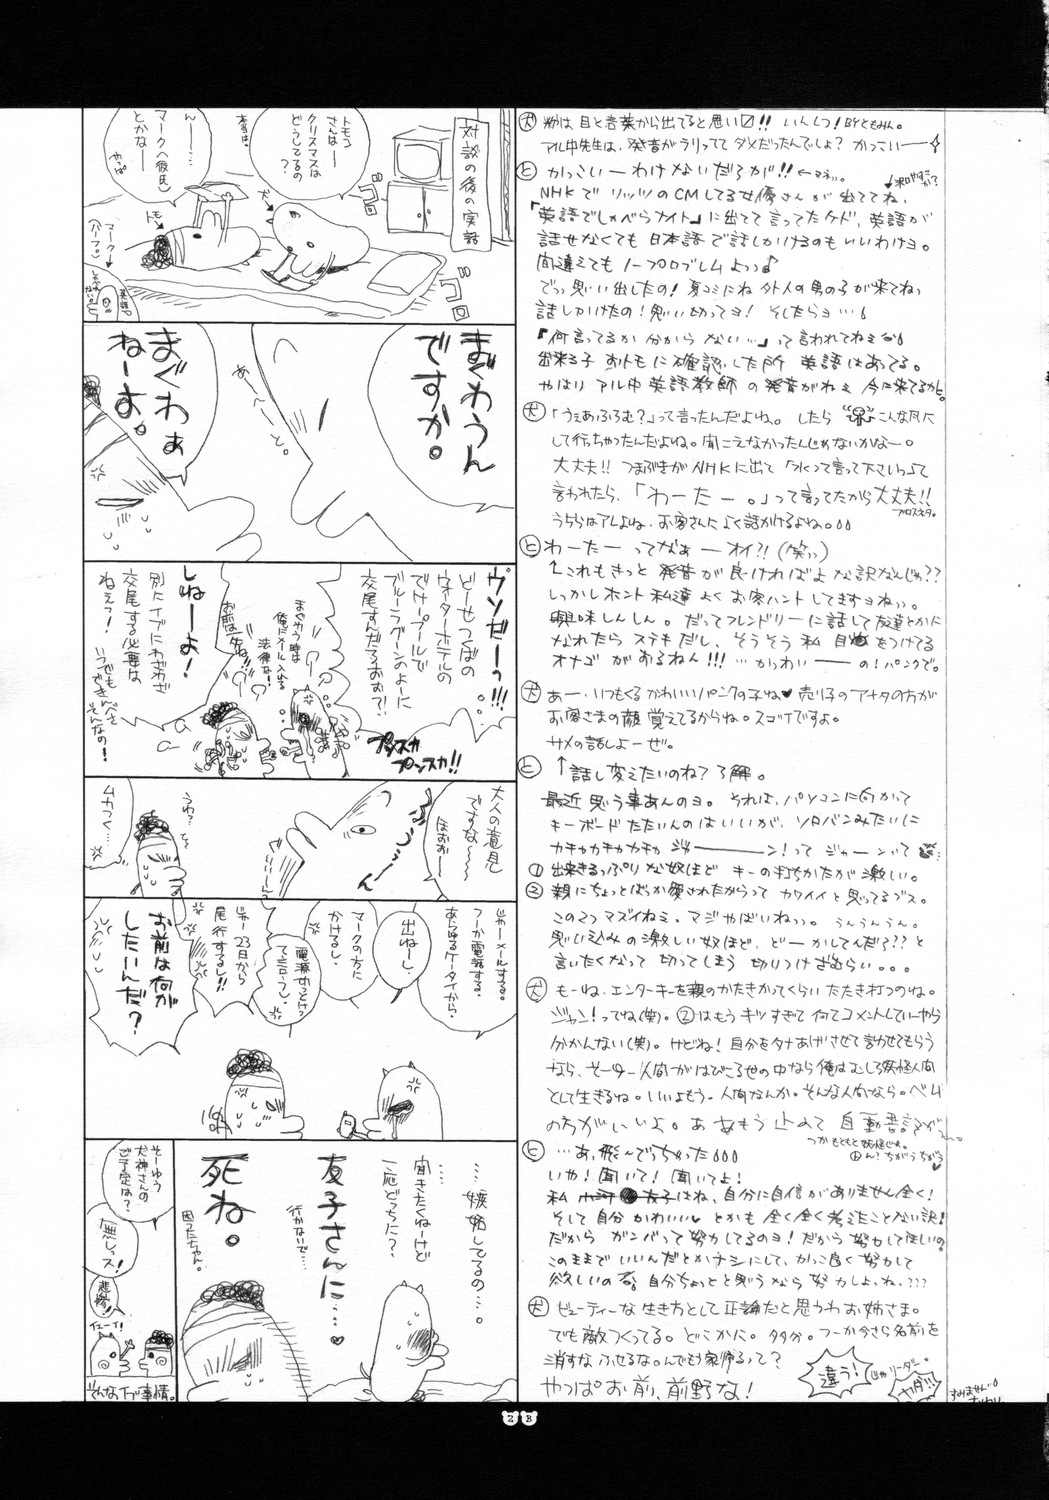 対談の後の実話
トモコ
さんは
クリスマスは
どうしてるの
？
本当は。
ん——
マーク(彼氏)
とかな—
やっぱ
ゴロ
ゴロ
犬
トモ
マーク
まぐわうん
ですか。
あ〜〜っと。
まぐわぁ
ねーよ。
ウソだーっ!!!
どーせつばの
でけープールで
ブルーラグーンのように
交尾すんだろおお？!
まぐわう時は
俺にメール入れる
法律な!
お前は死ね。
しねーよ！
別にイブにわざわざ
交尾する必要は
ねぇっ!
いつでも
そんなの!
プンスカ
プンスカ!!
大人の意見
ですな〜〜
ほおお—
うわ？
ムカつく…
じゃーメールする。
つーか電話する。
あらゆるケータイから。
出ねーし。
マークの方に
かけるし。
じゃー23日から
尾行するし!!
お前は何が
したいんだ？
…嫉妬してるの…。
…聞きたくねーけど
一応どっちに？
友子さんに…♥
行かないで…
死ね。
そーゆう
犬神さんの
ご予定は？
無しッス！
悲惨！
イエーイ！
そんな下が事情。
犬 粉は目と言葉から出てると思い〼!! いんしつ! BYともみん。
アル中先生は、発音がうりってて ダメだったんでしょ？ かっこいー—
と かっこい—わけないだろが!!
NHKで リッツのCMしてる女優さんが出ててね、
「英語でしゃべらナイト」に出てて言ってたケド、英語が
話せなくても 日本語で話しかけるのもいいわけヨ。
間違えてもノープロブレムよっ♪
でっ 思い出したの! 夏コミにね 外人の男の子が来てねっ
話しかけたの! 思い切ってヨ! そしたらヨ…
『何言ってるか分からない…』って言われてねぇ
出来る子 おトモに確認した所 英語はあてる。
やはり アル中英語教師の発音がねぇ
犬 「うぇあふろむ？」って言ったんだよね。したら こんな風に
して行っちゃったんだよね。聞こえなかったんじゃないかな—。
大丈夫!! つまぶきがNHKに出て「水って言って下さいっ」って
言われたら、「わーたー。」って言ってたから大丈夫!!
うちらはアレよね、お客さんによく話かけるよね。
と わーたー ってなぁ—オイ?! (笑)
↑これもきっと 発音が良ければよな訳なんじゃ??
しっかしホント 私達 よく お客ハント してますヨねっ。
興味しんしん。だってフレンドリーに話して友達とかに
なれたら ステキだし、そうそう 私 目をつけてる
オナゴ がおるねん!!! …かっわいー—の! パンクで。
犬 あー、いつもくるかわいいパンクの子ね♥ 売り子のアナタの方が
お客さまの顔 覚えてるからね。スゴイですよ。
サメの話しよーぜ。
と ↑話し変えたいのね？了解。
最近 思う事あんのヨ。それは、パソコンに向かって
キーボード たたいんのはいいが、ソロバンみたいに
カチャカチャカチャ ジャ———ン！って ジャーンって
① 出来るっぷりな奴ほど キーの打ちかたが激しい。
② 親にちょっとばっか愛されたからって カワイイと思ってるブス。
この2つ マズイねぇ、マジやばいねっ。うんうんうん。
思い込みの激しい奴ほど、どーかしてんだ???と
言いたくなって 切ってしまう 切りつけざむらい。。。
犬 もーね、エンターキーを親のかたきかってくらい たたき打つのね。
ジャン!ってね(笑)。②はもう キツすぎて 何てコメントしていーやら
分かんない(笑)。サドね! 自分をタナあげさせて言わせてもらう
なら、そーゆー人間がはびこる世の中なら俺はむしろ妖怪人間
として生きるね。いいよもう、人間なんか。そんな人間なら。ベム
の方がいいよ。あ あもう 止めて 自動書記が〜。
と …あ、飛〜でっちゃった
いや! 聞いて! 聞いてよ!
私 はね、自分に自信がありません全く!
そして自分 かわいい♥とかも 全く全く考えたことない訳!
だから ガンバって努力してるのヨ! だから 努力してほしいの。
このままで いいんだとかナシにして、かっこ良く 努力して
欲しいのヨ。自分ちょっとと思うなら 努力しよ、ね、???
犬 ビューティーな生き方として正論だと思うわお姉さま。
でも敵つくってる。どこかに。多分。つーか今さら名前を
消すな ふせるな。んでもう家帰るって？
やっぱお前、前野な!
違う!
じゃリーダー。
ヤダ!!
すみません
2B